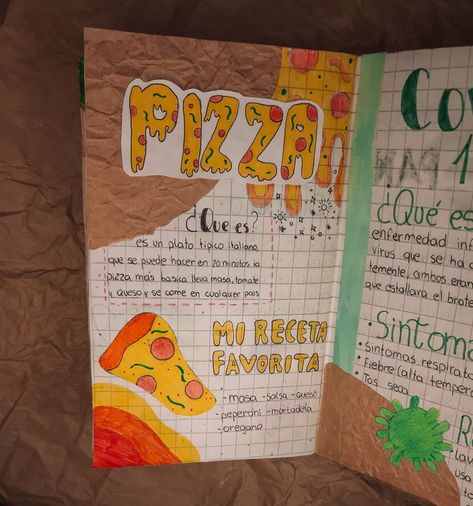 PIZZA
¿Que es?
es un plato tipico italiano,
que se puede hacer en 20 minutos la
pizza más basica lleva masa, tomate
y queso y se come en cualquer pais
MI RECETA
FAVORITA
- masa - salsa - queso
- peperoni - mortadela
- oregano
Co
1
¿Qué es
enfermedad inf
virus que se ha d
temente, ambos eran
que estallara el brote
• Sintoma
• Sintomas respirato
• Fiebre (alta tempera
• Tos seca
R
Lav
usa